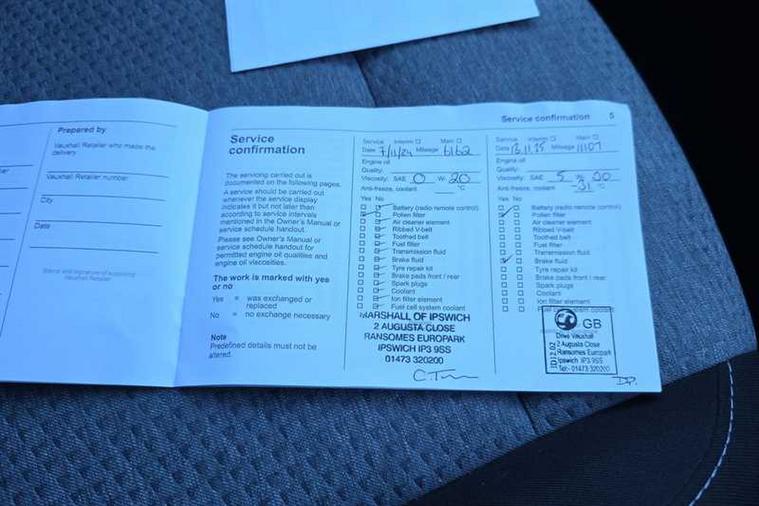 Prepared by
Vauxhall Retailer who made the
delivery
Vauxhall Retailer number
City
Date
Stamp and signature of supplying
Vauxhall Retailer
Service
confirmation
The servicing carried out is
documented on the following pages.
A service should be carried out
whenever the service display
indicates it but not later than
according to service intervals
mentioned in the Owner's Manual or
service schedule handout.
Please see Owner's Manual or
service schedule handout for
permitted engine oil qualities and
engine oil viscosities.
The work is marked with yes
or no
Yes = was exchanged or
replaced
No = no exchange necessary
Note
Predefined details must not be
altered.
Service confirmation 5
Service Interim Main
Date 7/11/24 Mileage 6162
Engine oil
Quality:
Viscosity: SAE 0 W- 20
Anti-freeze, coolant °C
Yes No
Battery (radio remote control)
Pollen filter
Air cleaner element
Ribbed V-belt
Toothed belt
Fuel filter
Transmission fluid
Brake fluid
Tyre repair kit
Brake pads front / rear
Spark plugs
Coolant
Ion filter element
Fuel cell system coolant
MARSHALL OF IPSWICH
2 AUGUSTA CLOSE
RANSOMES EUROPARK
IPSWICH IP3 9SS
01473 320200
Service Interim Main
Date 13.11.25 Mileage 11107
Engine oil
Quality:
Viscosity: SAE 5 W- 30
Anti-freeze, coolant -31 °C
Yes No
Battery (radio remote control)
Pollen filter
Air cleaner element
Ribbed V-belt
Toothed belt
Fuel filter
Transmission fluid
Brake fluid
Tyre repair kit
Brake pads front / rear
Spark plugs
Coolant
Ion filter element
Fuel cell system coolant
GB
Drive Vauxhall
2 Augusta Close
Ransomes Europark
Ipswich IP3 9SS
Tel:- 01473 320200